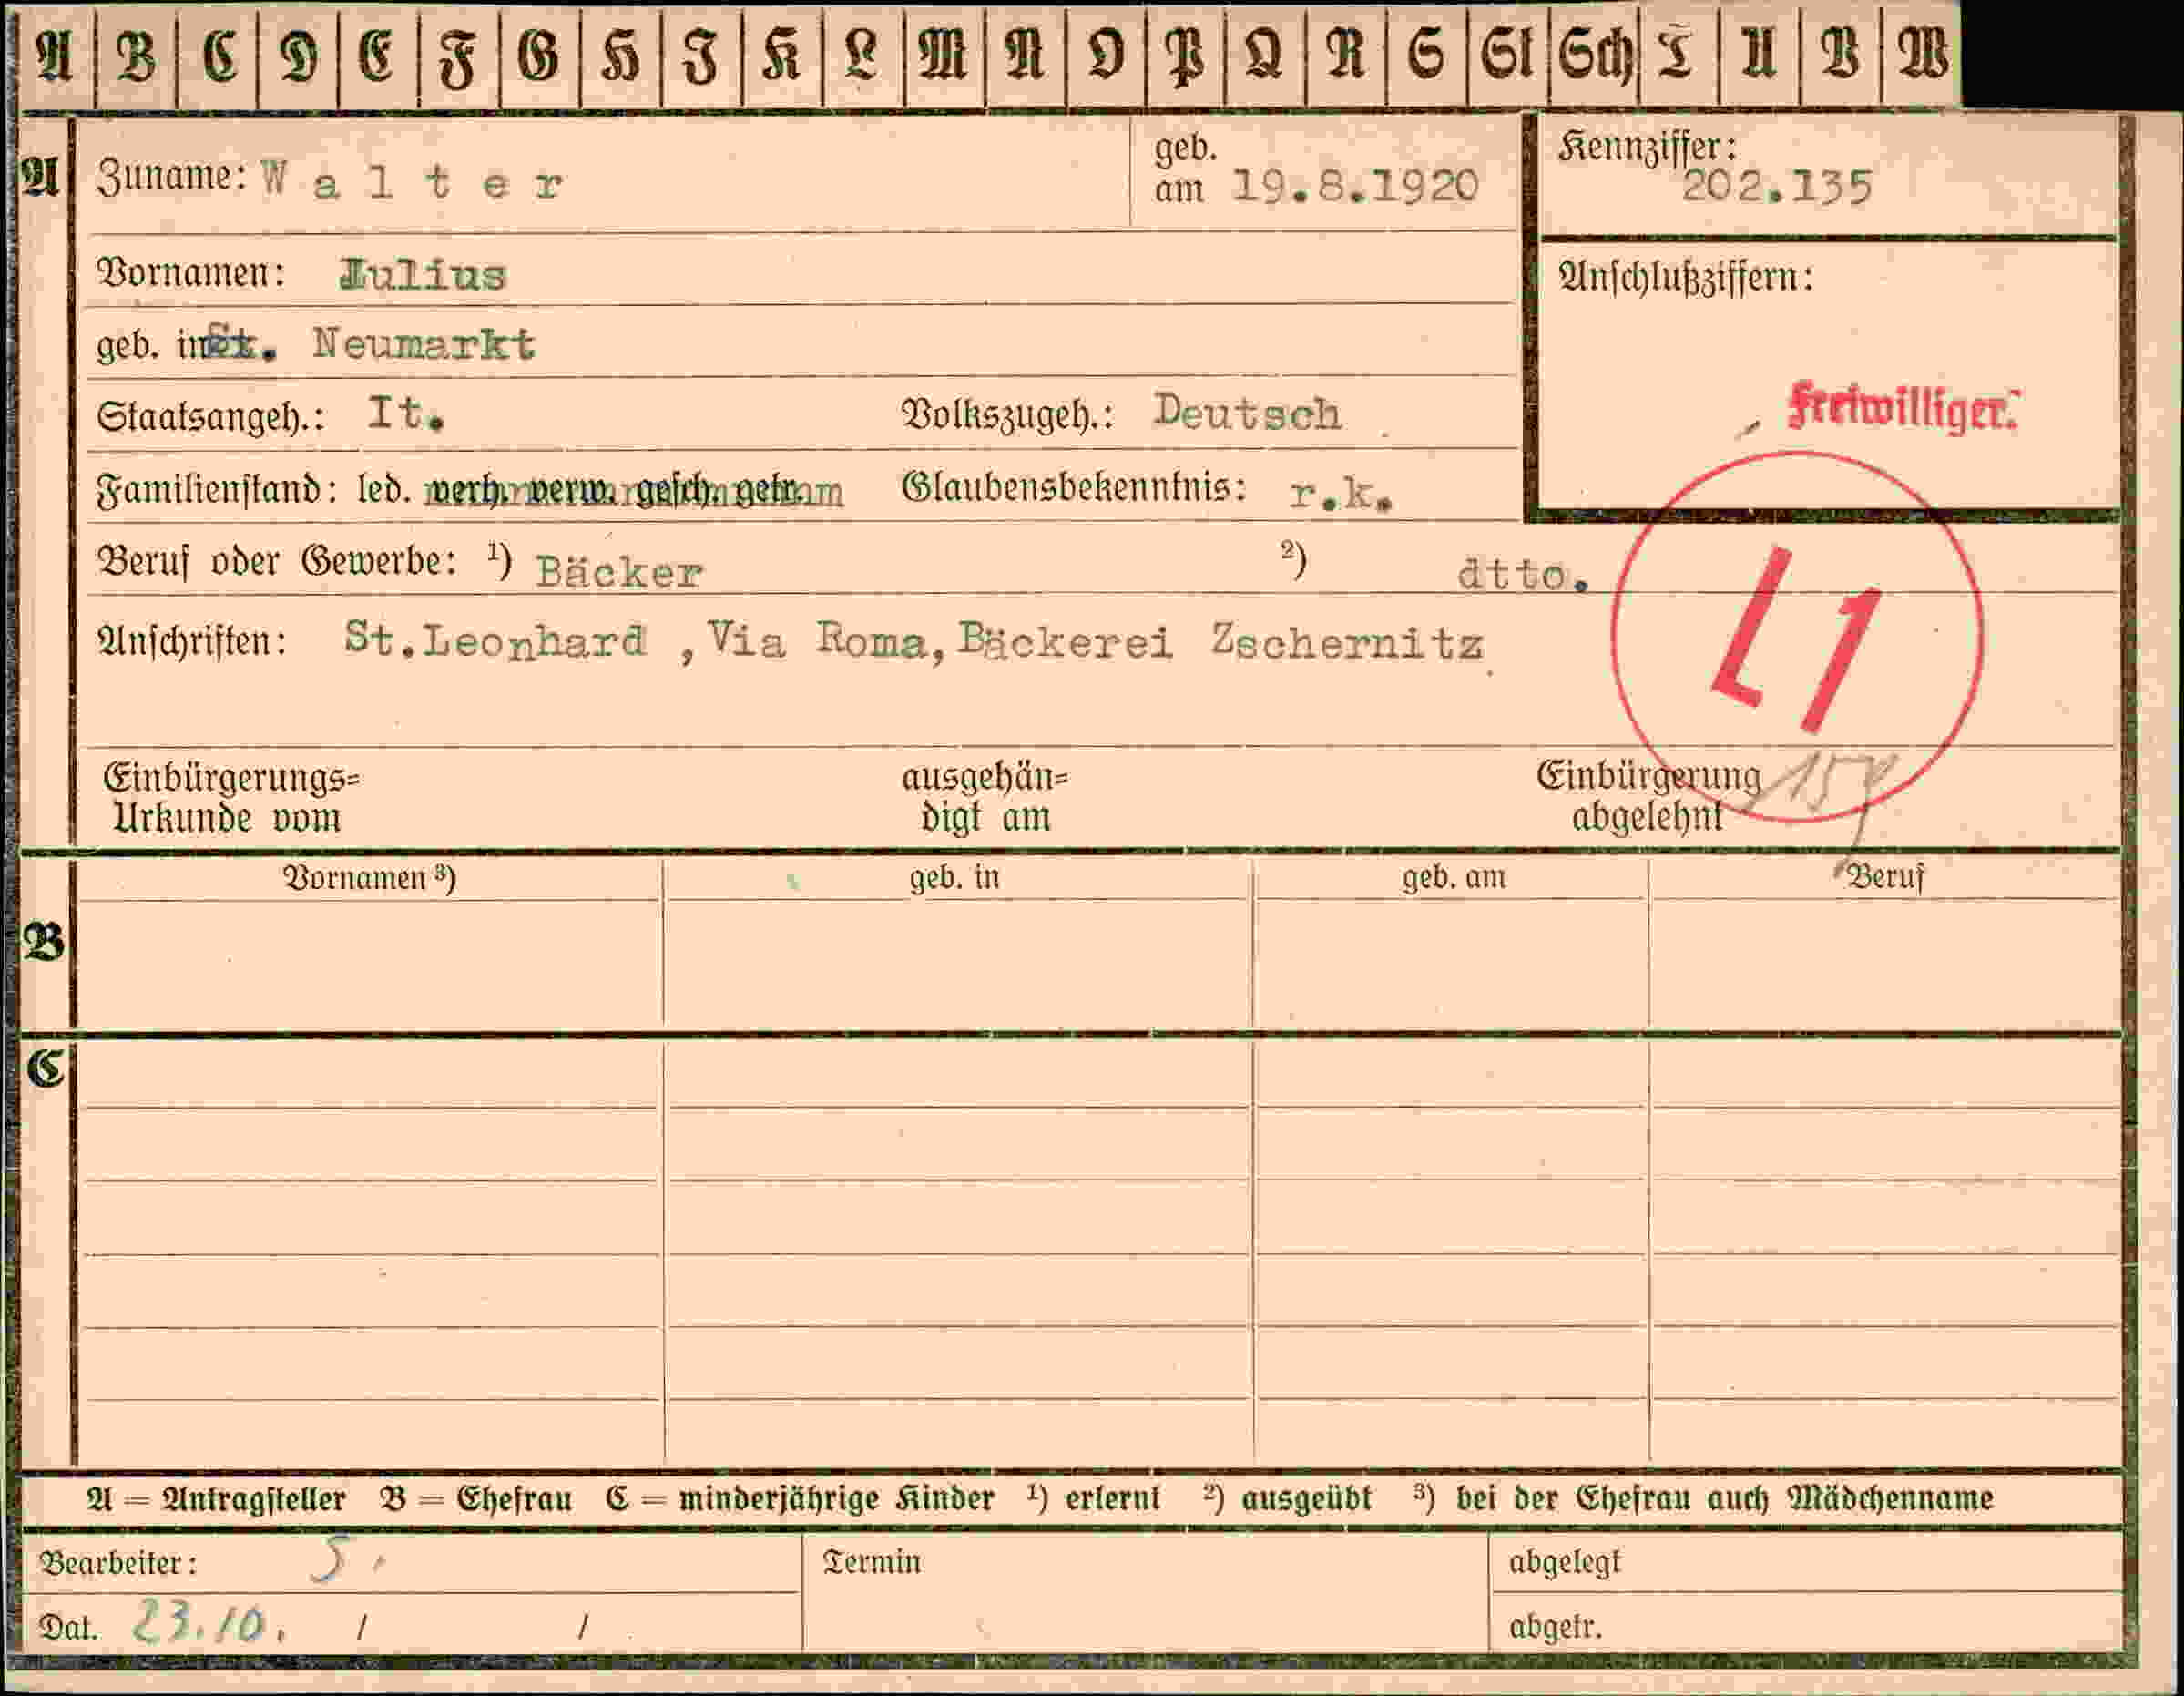 A B C D E F G H I K L M N O P Q R S St Sch T U V W
A Zuname: Walter geb. am 19.8.1920 Kennziffer: 202.135
Vornamen: Julius Anschlußziffern:
geb. in St. Neumarkt
Staatsangeh.: It. Volkszugeh.: Deutsch Freiwilliger.
Familienstand: led. verh. verw. gesch. getr. Glaubensbekenntnis: r.k.
Beruf oder Gewerbe: ¹) Bäcker ²) dtto.
L1
Anschriften: St.Leonhard ,Via Roma,Bäckerei Zschernitz
Einbürgerungs= ausgehän= Einbürgerung
Urkunde vom digt am abgelehnt
Vornamen ³) geb. in geb. am Beruf
B
C
A = Antragsteller B = Ehefrau C = minderjährige Kinder ¹) erlernt ²) ausgeübt ³) bei der Ehefrau auch Mädchenname
Bearbeiter: Termin abgelegt
Dat. 23.10. / / abgetr.